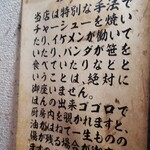 当店は特別な手法で
チャーシューを焼い
たり、イケメンが働いて
いたり、パンダが笹を
食べていたりなどと
いうことは、絶対に
御座いません。
ほんの出来ゴコロで
厨房内を覗かれますと、
油がはねて一生ものの
傷が残る場合が御